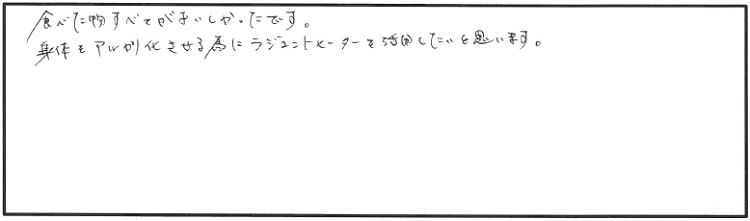 食べた物すべてがおいしかったです。
身体をアルカリ化させる為にラジエントヒーターを活用したいと思います。